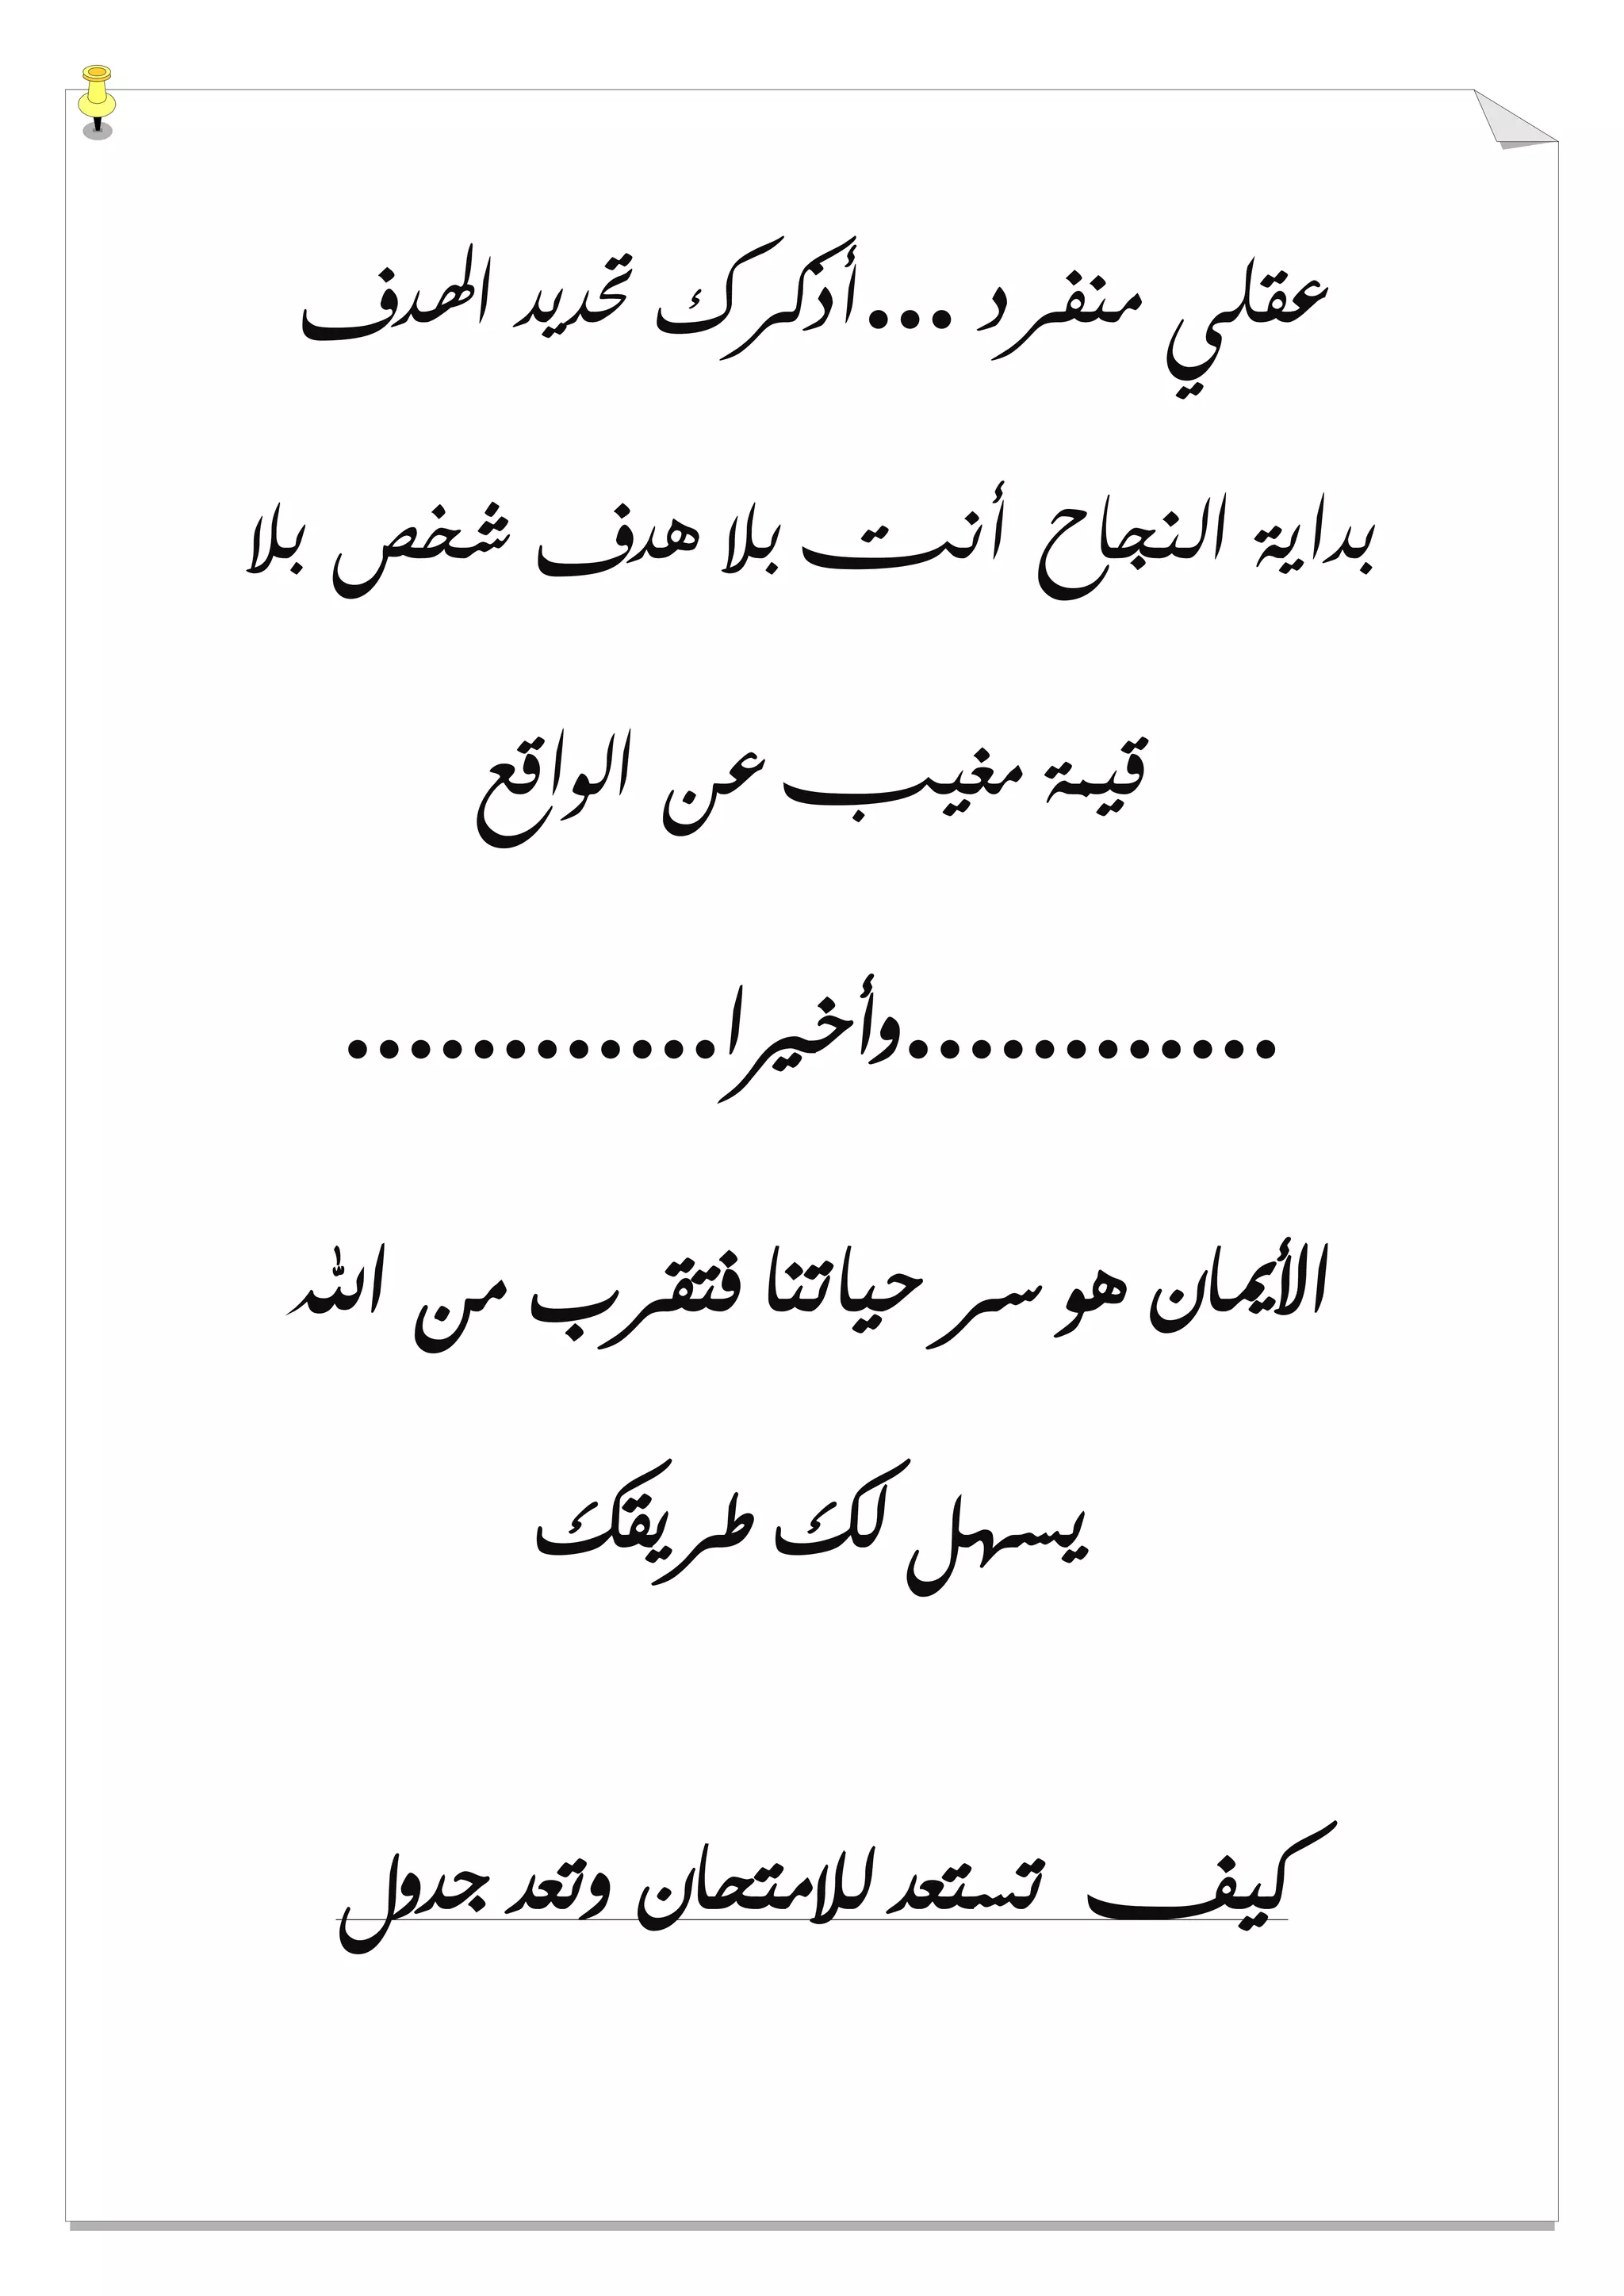 عقلي منفرد...أذكرك تحديد الهدف
بداية النجاح أنت بلا هدف شخص بلا
قيمه مغيب عن الواقع
............وأخيرا............
الأيمان هو سر حياتنا فتقرب من الله
يسهل لكَ طريقكَ
كيف تستعد للامتحان وتعد جدول